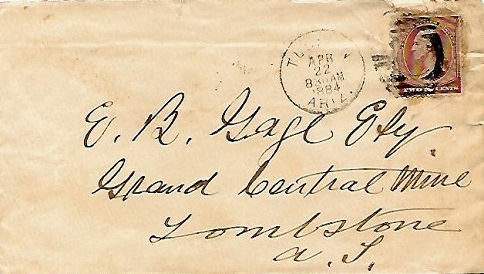 APR
22
830AM
1884
ARIZ.
TWO CENTS
E. B. Gage Esq.
Grand Central Mine
Tombstone
A. T.